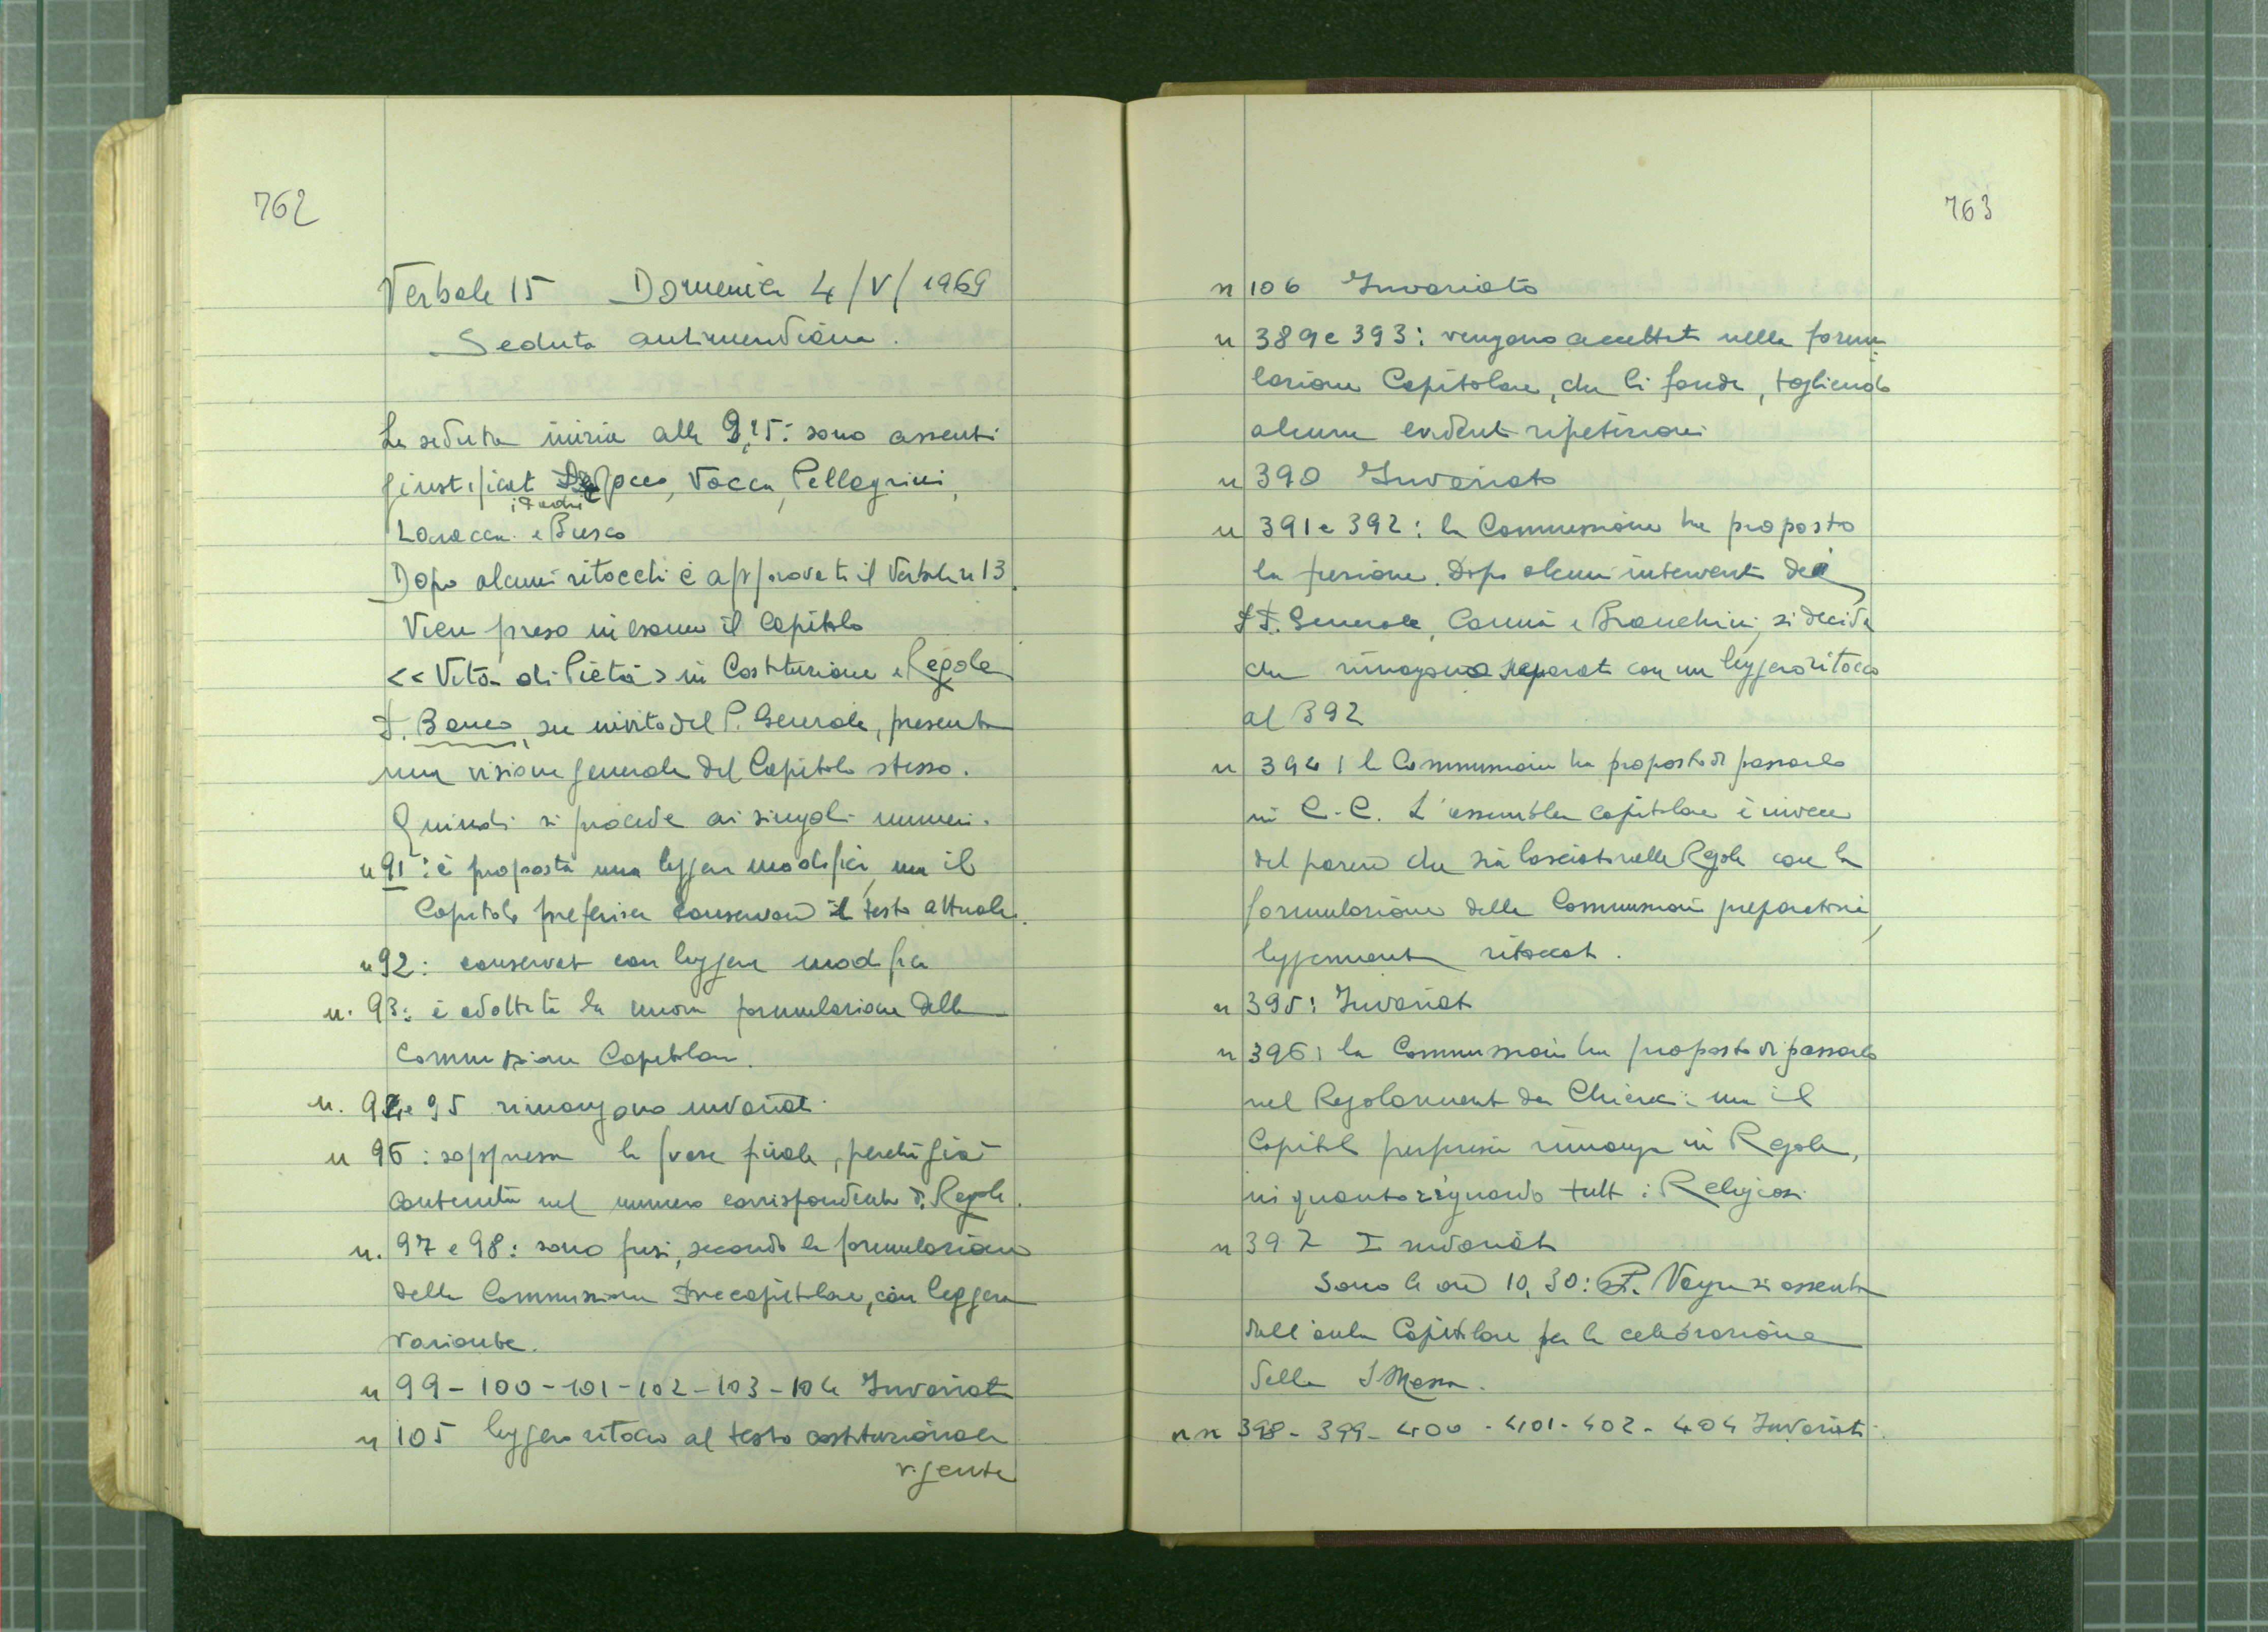 762
Verbale 15 Domenica 4/V/1969
Seduta antimeridiana.
La seduta inizia alle 9,15: sono assenti
giustificati i Padri Vacca, Pellegrini,
Laracca e Busco
Dopo alcuni ritocchi è approvato il Verbale n 13.
Viene preso in esame il Capitolo
<< Vita di Pietà > in Costituzione e Regole
P. Banco, su invito del P. Generale, presenta
una visione generale del Capitolo stesso.
Quindi si procede ai singoli numeri.
n 91: è proposta una leggera modifica, ma il
Capitolo preferisce conservare il testo attuale.
n 92: conservato con leggera modifica
n. 93: è adottata la nuova formulazione della
Commissione Capitolare.
n. 94 e 95 rimangono invariati.
n 96: soppressa la frase finale, perché già
contenuta nel numero corrispondente di Regole.
n. 97 e 98: sono fusi, secondo la formulazione
della Commissione Precapitolare, con leggera
variante.
n 99 - 100 - 101 - 102 - 103 - 104 Invariati
n 105 leggero ritocco al testo costituzionale
vigente
763
n 106 Invariato
n 389 e 393: vengono accettati nella formu-
lazione Capitolare, che li fonde, togliendo
alcune evidenti ripetizioni
n 390 Invariato
n 391 e 392: la Commissione ha proposto
la fusione. Dopo alcuni interventi dei
PP. Generale, Cannia e Bianchini, si decide
che rimangano separati con un leggero ritocco
al 392
n 394: la Commissione ha proposto di passarlo
in C.C. L'assemblea capitolare è invece
del parere che sia lasciato nelle Regole con la
formulazione della Commissione preparatoria,
leggermente ritoccata.
n 395: Invariato
n 396: la Commissione ha proposto di passarlo
nel Regolamento dei Chierici: ma il
Capitolo preferisce rimanga in Regole,
in quanto riguarda tutti i Religiosi.
n 397 Invariato
Sono le ore 10,30: P. si assenta
dall'aula Capitolare per la celebrazione
della S Messa.
nn 398 - 399 - 400 - 401 - 402 - 404 Invariati.